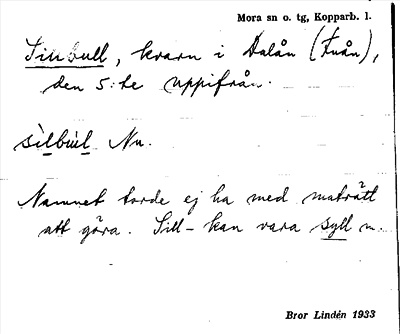 Mora sn o. tg, Kopparb. l.
Sillbull, kvarn i Dalån (Fuån),
den 5:te uppifrån.
sìlbùl Nu.
Namnet torde ej ha med maträtt
att göra. Sill- kan vara syll m.
Bror Lindén 1933